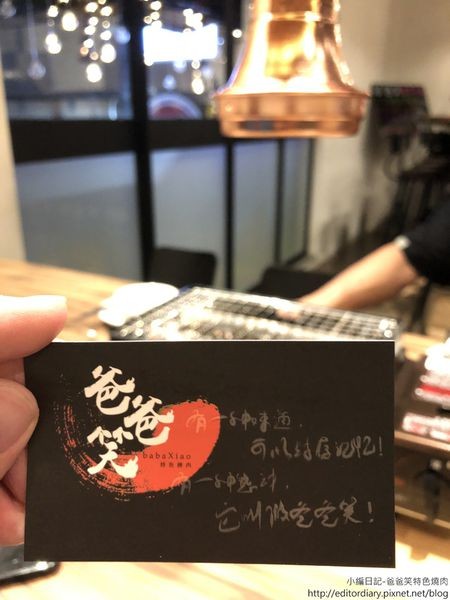 爸爸笑
babaXiao
特色燒肉
有一種味道,
可以特有記憶!
有一種想討,
它叫做爸爸笑!
小編日記-爸爸笑特色燒肉
http://editordiary.pixnet.net/blog